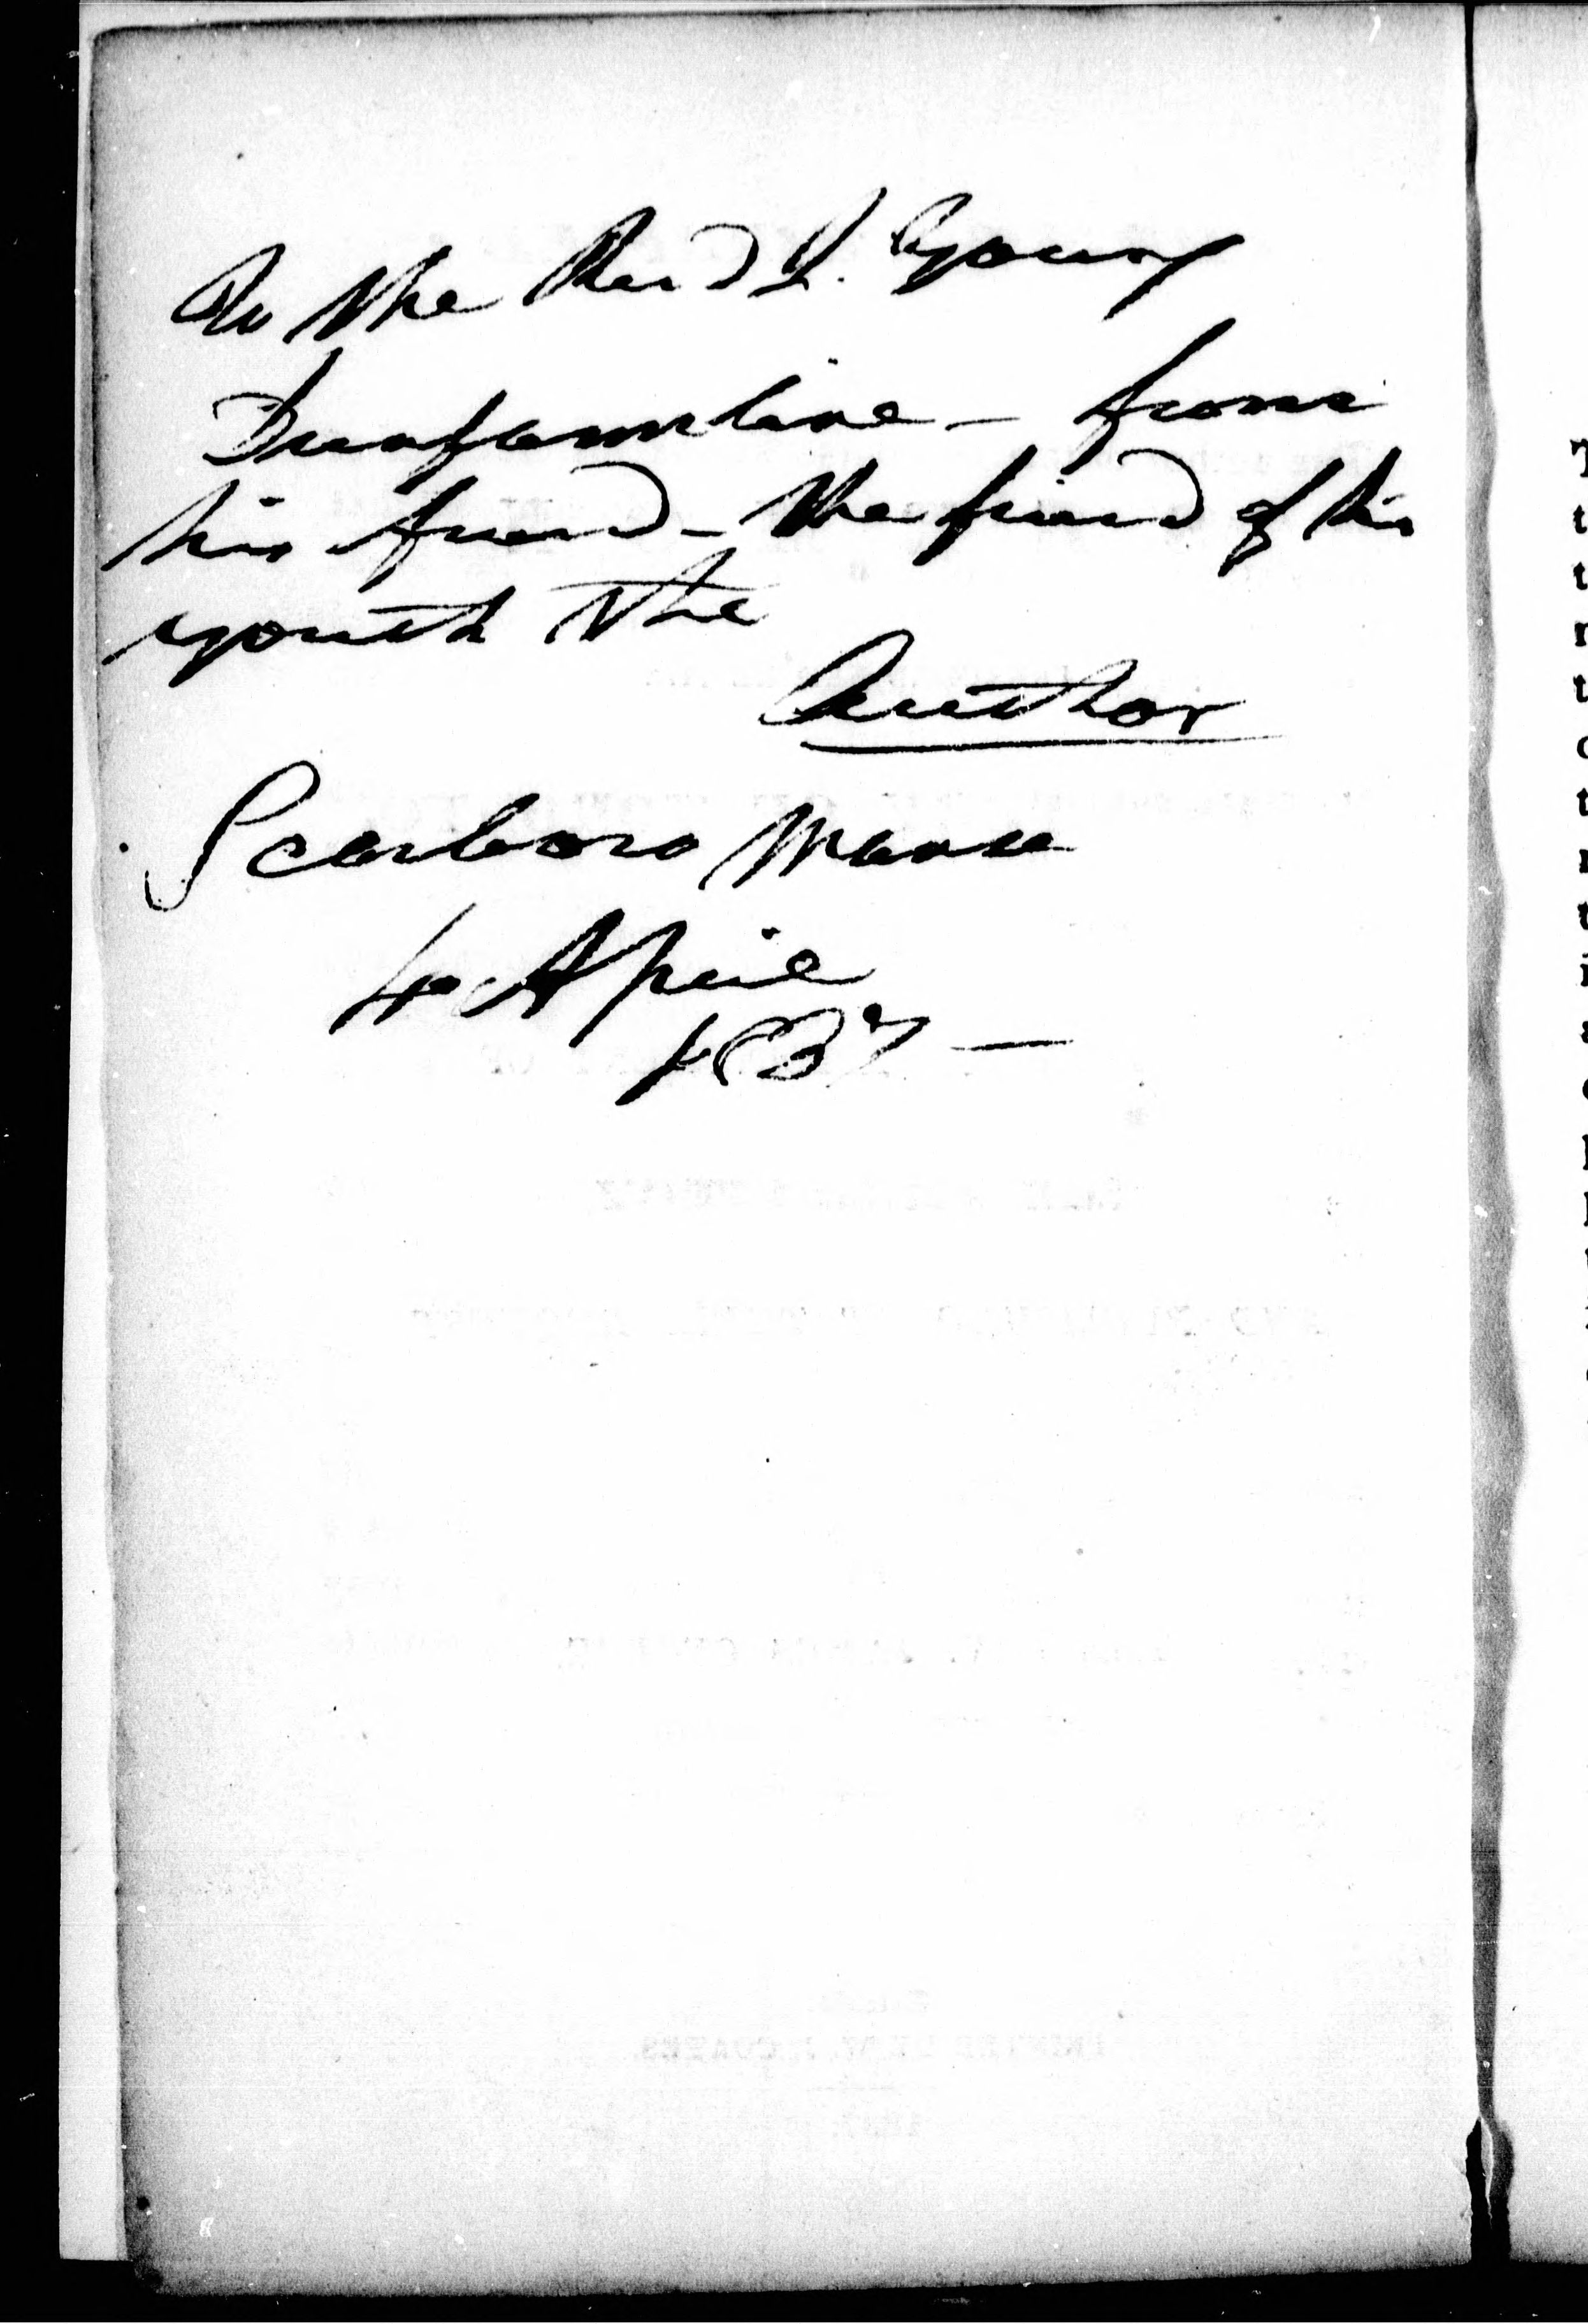 To the Revd J. Young
Dunfermline - from
his friend - the friend of his
youth the
Author
Scarboro Manse
4 April
1837 -